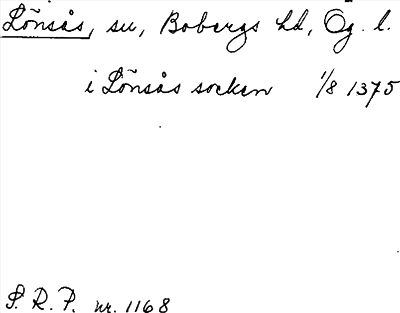 Lönsås, sn, Bobergs hd, Ög. l.
i Lönsås socken 1/8 1375
S. R. P. nr. 1168